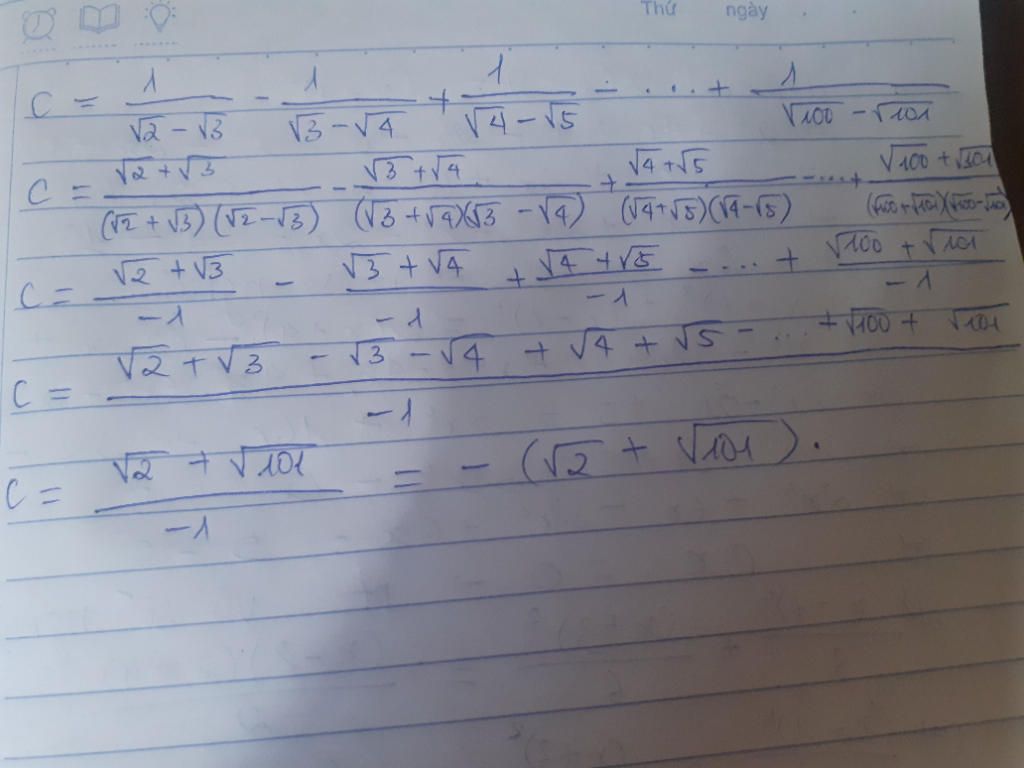 Thứ ngày . .
C = 1/(√2 − √3) − 1/(√3 − √4) + 1/(√4 − √5) − ... + 1/(√100 − √101)
C = (√2 + √3)/((√2 + √3)(√2 − √3)) − (√3 + √4)/((√3 + √4)(√3 − √4)) + (√4 + √5)/((√4 + √5)(√4 − √5)) − ... + (√100 + √101)/((√100 + √101)(√100 − √101))
C = (√2 + √3)/(−1) − (√3 + √4)/(−1) + (√4 + √5)/(−1) − ... + (√100 + √101)/(−1)
C = (√2 + √3 − √3 − √4 + √4 + √5 − ... + √100 + √101)/(−1)
C = (√2 + √101)/(−1) = − (√2 + √101).